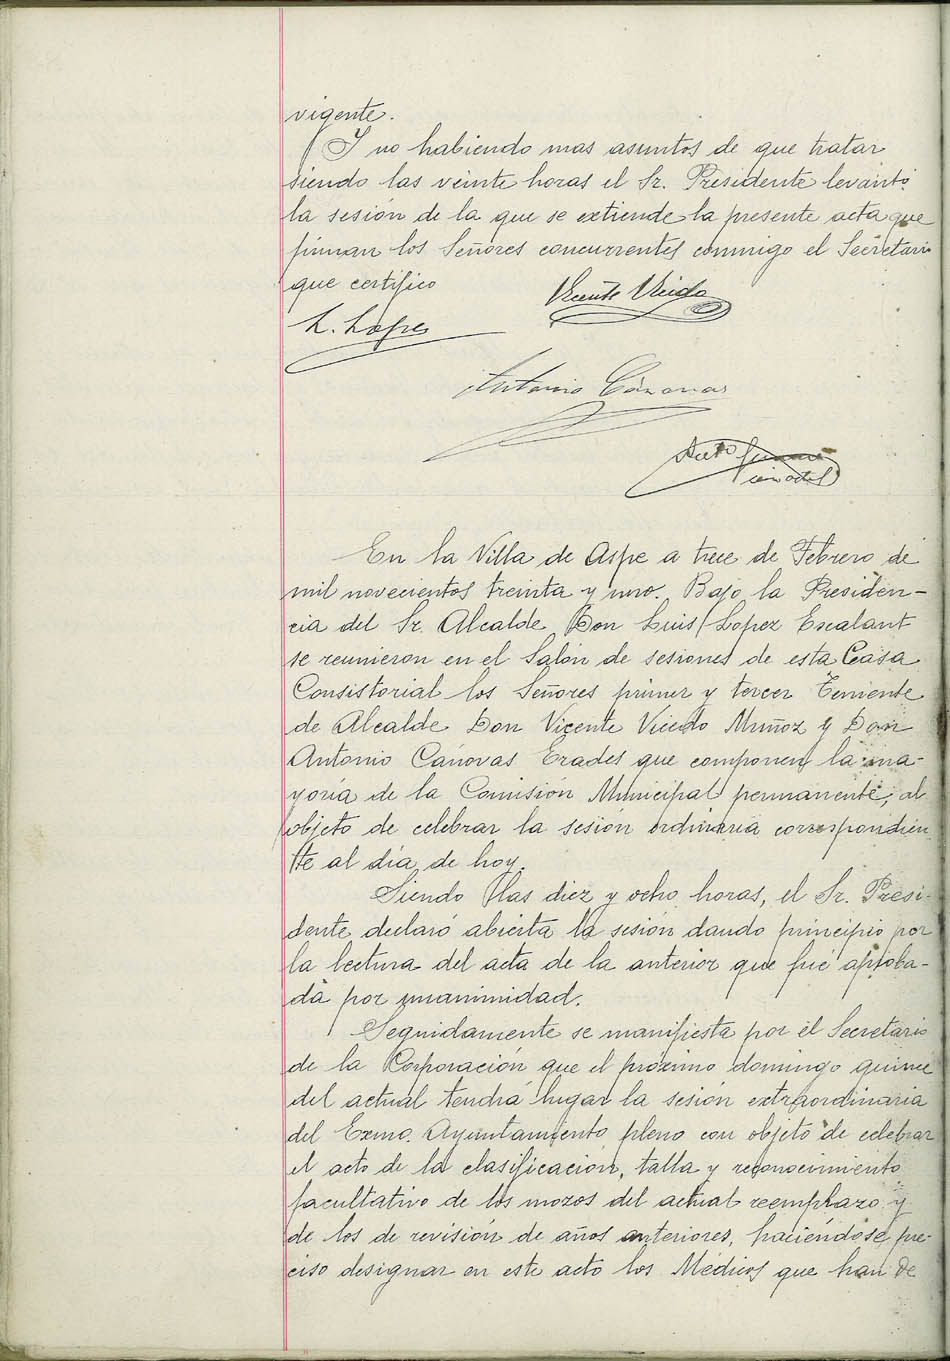 vigente.
Y no habiendo mas asuntos de que tratar
siendo las veinte horas el Sr. Presidente levantó
la sesión de la que se extiende la presente acta que
firman los Señores concurrentes conmigo el Secretario
que certifico
Vicente Vicedo
L. López
Antonio Cánovas
En la Villa de Aspe a trece de Febrero de
mil novecientos treinta y uno. Bajo la Presiden-
cia del Sr. Alcalde Don Luis Lopez Escalant
se reunieron en el Salón de sesiones de esta Casa
Consistorial los Señores primer y tercer Teniente
de Alcalde Don Vicente Vicedo Muñoz y Don
Antonio Cánovas Erades que componen la ma-
yoría de la Comisión Municipal permanente, al
objeto de celebrar la sesion ordinaria correspondien
te al día de hoy.
Siendo las diez y ocho horas, el Sr. Presi-
dente declaró abierta la sesión dando principio por
la lectura del acta de la anterior que fué aproba-
da por unanimidad.
Seguidamente se manifiesta por el Secretario
de la Corporación que el próximo domingo quince
del actual tendrá lugar la sesión extraordinaria
del Exmo. Ayuntamiento pleno con objeto de celebrar
el acto de la clasificación, talla y reconocimiento
facultativo de los mozos del actual reemplazo y
de los de revisión de años anteriores, haciéndose pre-
ciso designar en este acto los Médicos que han de